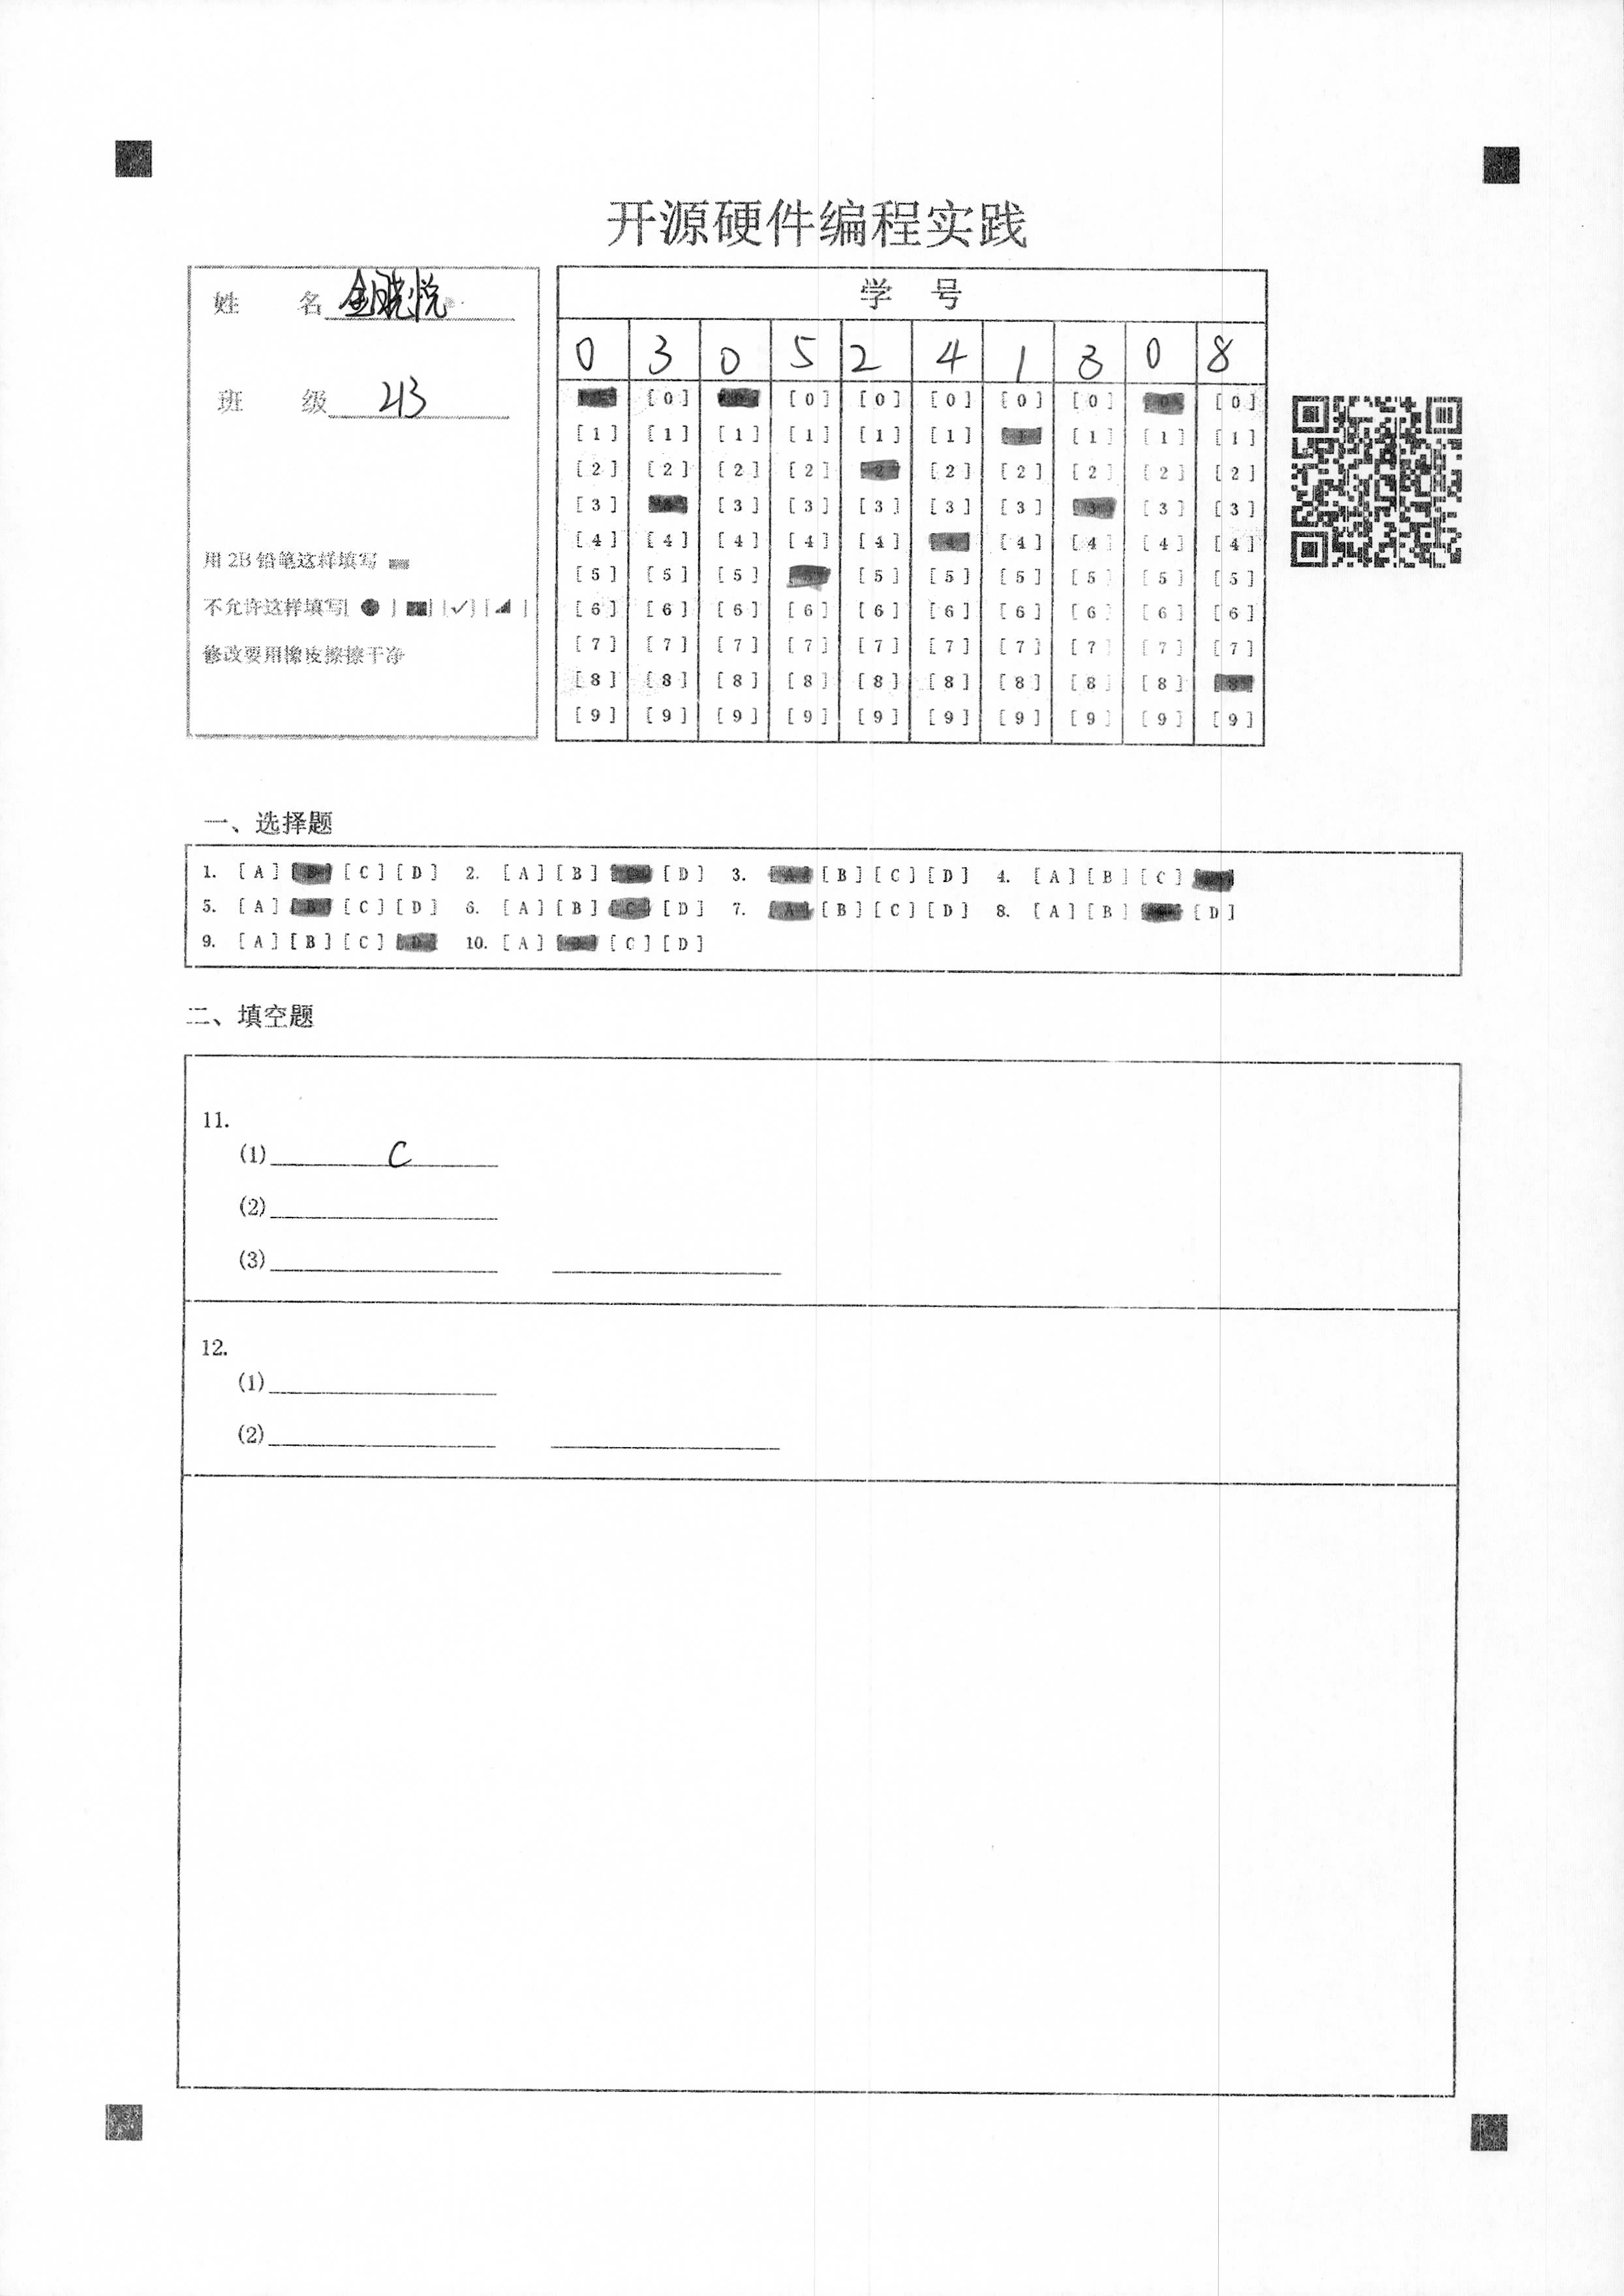 开源硬件编程实践
姓 名 金晓悦
班 级 213
用 2B 铅笔这样填写
不允许这样填写[ ● ] [■] [✓] [◢ ]
修改要用橡皮擦擦干净
学 号
0 3 0 5 2 4 1 3 0 8
[0] [0] [0] [0] [0] [0] [0] [0]
[1] [1] [1] [1] [1] [1] [1] [1] [1] [1]
[2] [2] [2] [2] [2] [2] [2] [2] [2] [2]
[3] [3] [3] [3] [3] [3] [3] [3] [3]
[4] [4] [4] [4] [4] [4] [4] [4] [4] [4]
[5] [5] [5] [5] [5] [5] [5] [5] [5]
[6] [6] [6] [6] [6] [6] [6] [6] [6] [6]
[7] [7] [7] [7] [7] [7] [7] [7] [7] [7]
[8] [8] [8] [8] [8] [8] [8] [8] [8] [8]
[9] [9] [9] [9] [9] [9] [9] [9] [9] [9]
一、选择题
1. [A] [B] [C] [D] 2. [A] [B] [D] 3. [A] [B] [C] [D] 4. [A] [B] [C]
5. [A] [B] [C] [D] 6. [A] [B] [C] [D] 7. [A] [B] [C] [D] 8. [A] [B] [D]
9. [A] [B] [C] [D] 10. [A] [C] [D]
二、填空题
11.
(1) C
(2)
(3)
12.
(1)
(2)